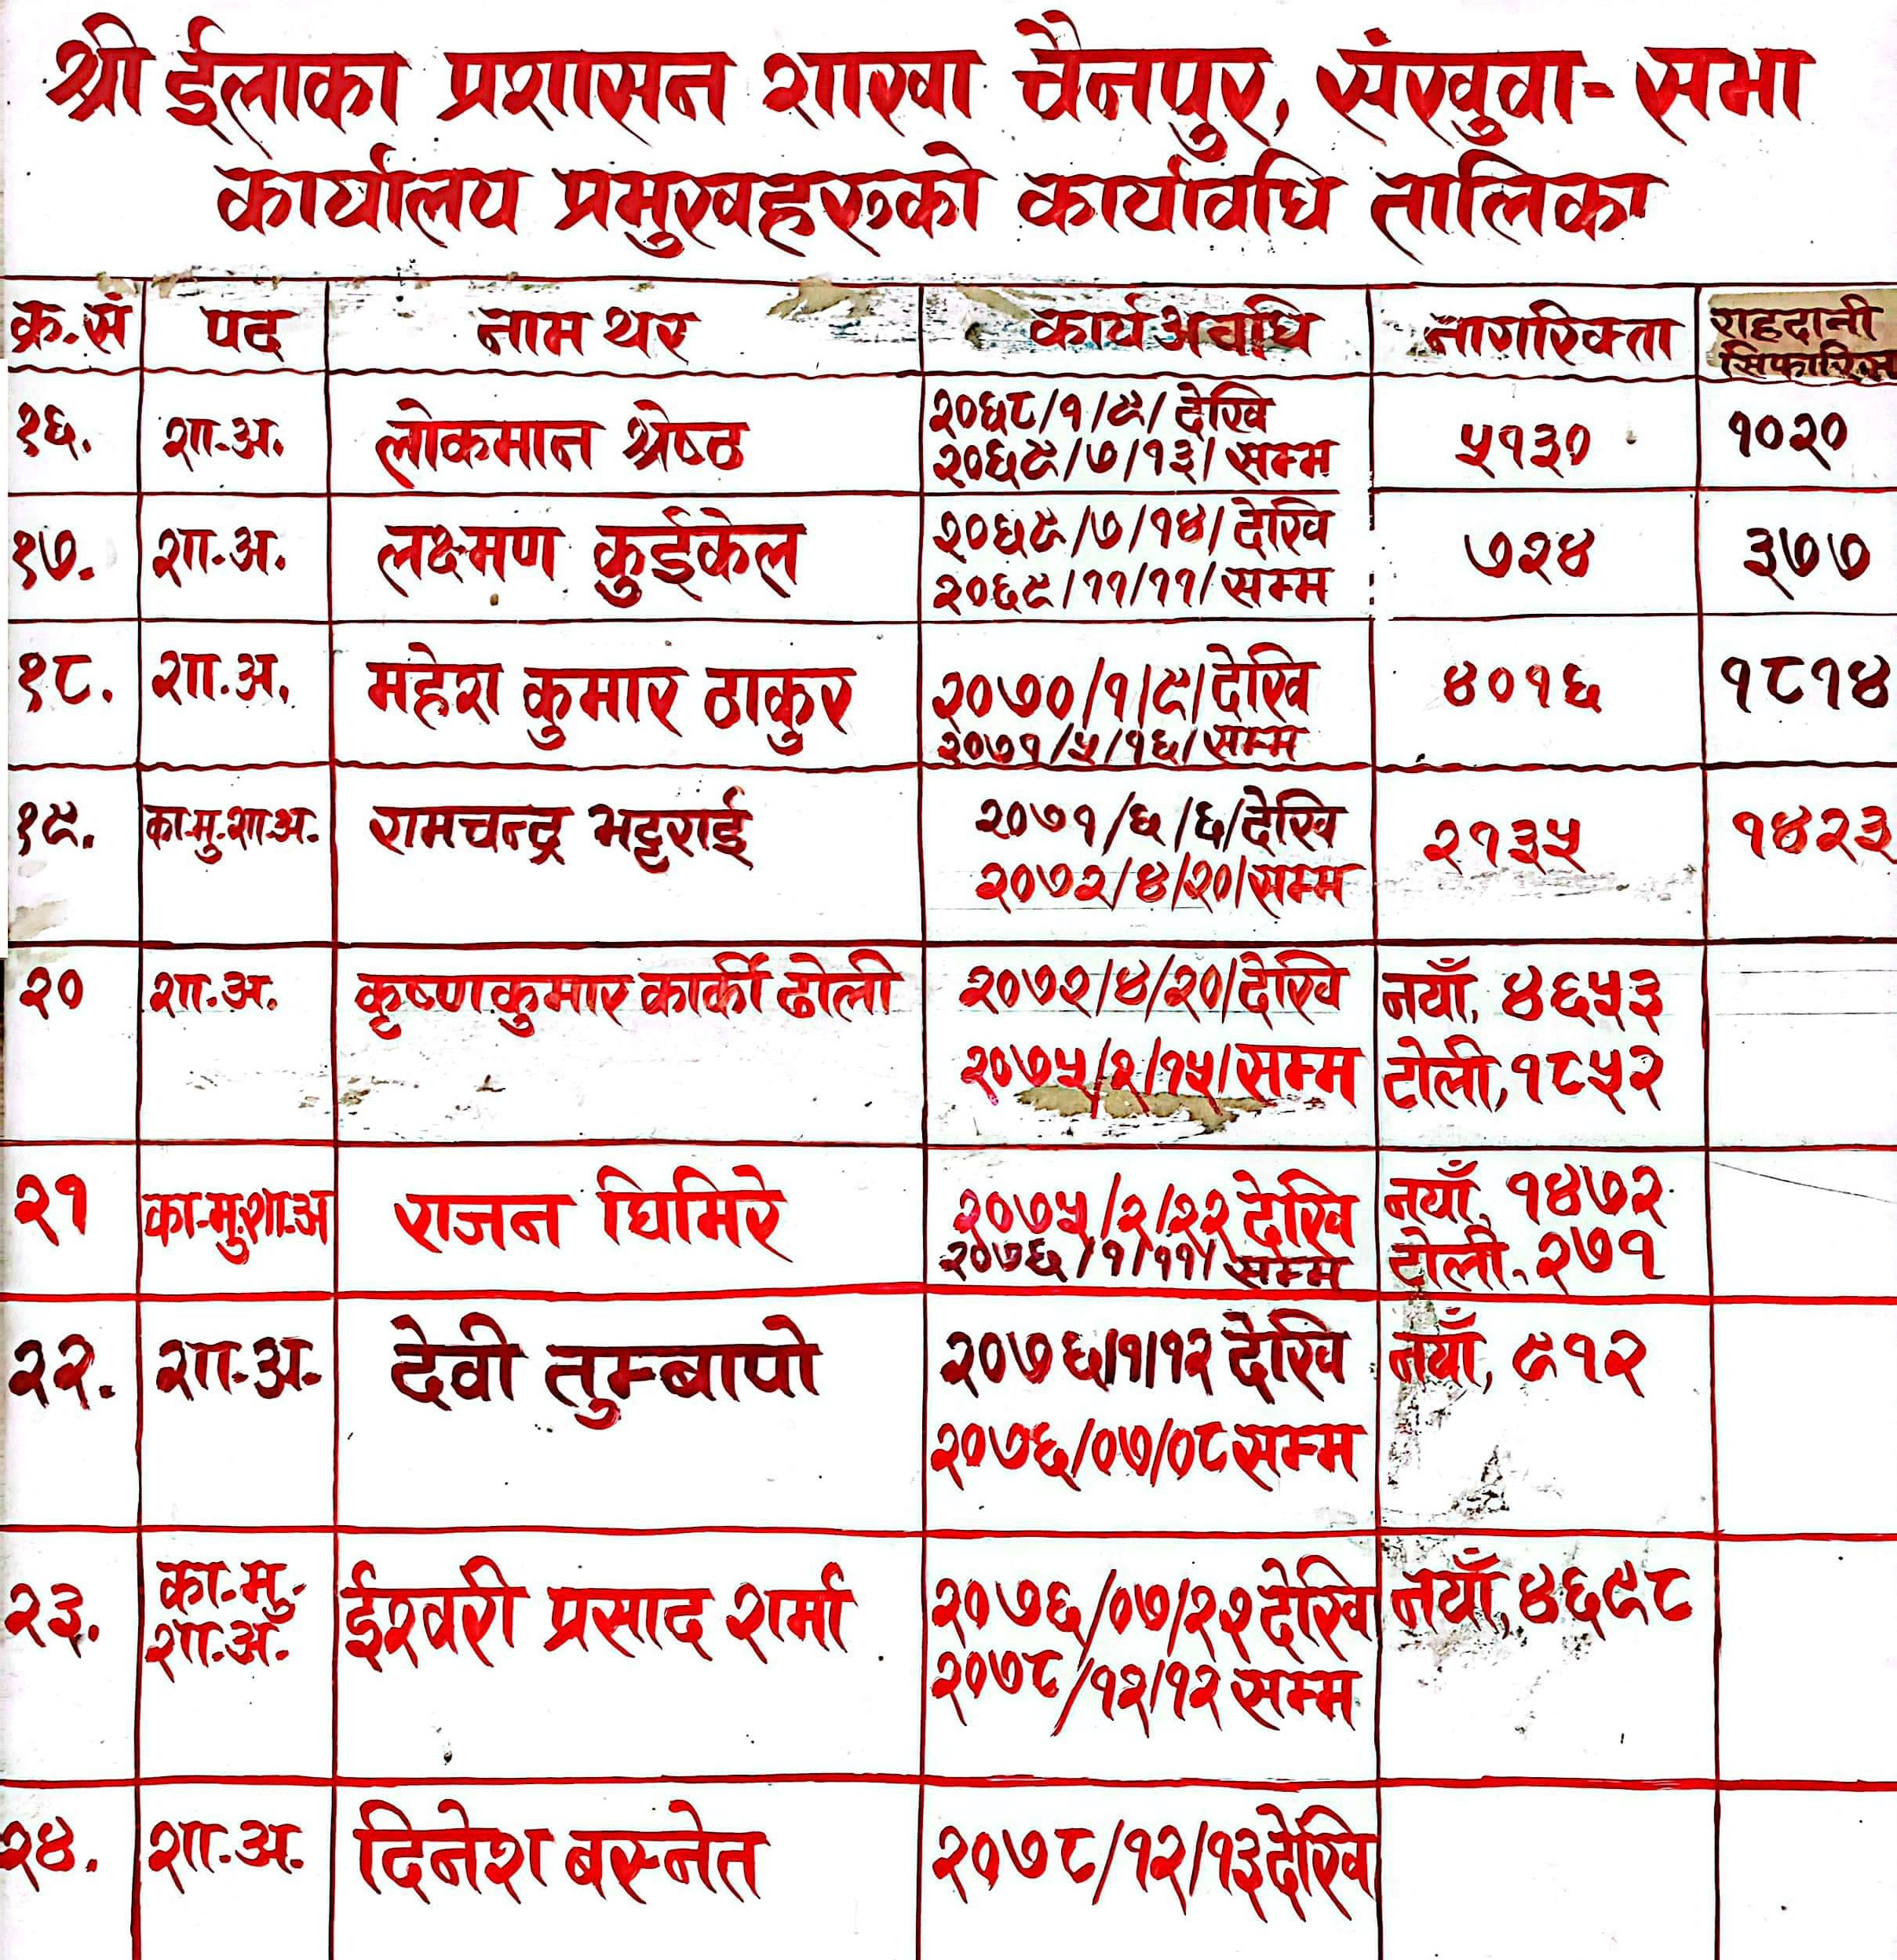 श्री ईलाका प्रशासन शाखा चैनपुर, संखुवा-सभा
कार्यालय प्रमुखहरुको कार्यावधि तालिका
क्र.सं पद नाम थर कार्य अवधि नागरिक्ता राहदानी सिफारिस
१६. शा.अ. लोकमान श्रेष्ठ २०६८/१/९/ देखि ५१३० १०२०
२०६९/७/१३/ सम्म
१७. शा.अ. लक्ष्मण कुईकेल २०६९/७/१४/ देखि ७२४ ३७७
२०६९/११/११/ सम्म
१८. शा.अ. महेश कुमार ठाकुर २०७०/१/९/ देखि ४०१६ १८१४
२०७१/५/१६/ सम्म
१९. का.मु.शा.अ. रामचन्द्र भट्टराई २०७१/६/६/देखि २१३५ १४२३
२०७२/४/२०/सम्म
२० शा.अ. कृष्णकुमार कार्की ढोली २०७२/४/२०/देखि नयाँ. ४६५३
२०७५/२/१५/सम्म टोली, १८५२
२१ का.मु.शा.अ राजन घिमिरे २०७५/२/२२ देखि नयाँ. १४७२
२०७६/१/११/ सम्म टोली. २७१
२२. शा.अ. देवी तुम्बापो २०७६/१/१२ देखि नयाँ, ९१२
२०७६/०७/०८ सम्म
२३. का.मु. शा.अ. ईश्वरी प्रसाद शर्मा २०७६/०७/२२ देखि नयाँ, ४६९८
२०७८/१२/१२ सम्म
२४. शा.अ. दिनेश बस्नेत २०७८/१२/१३ देखि